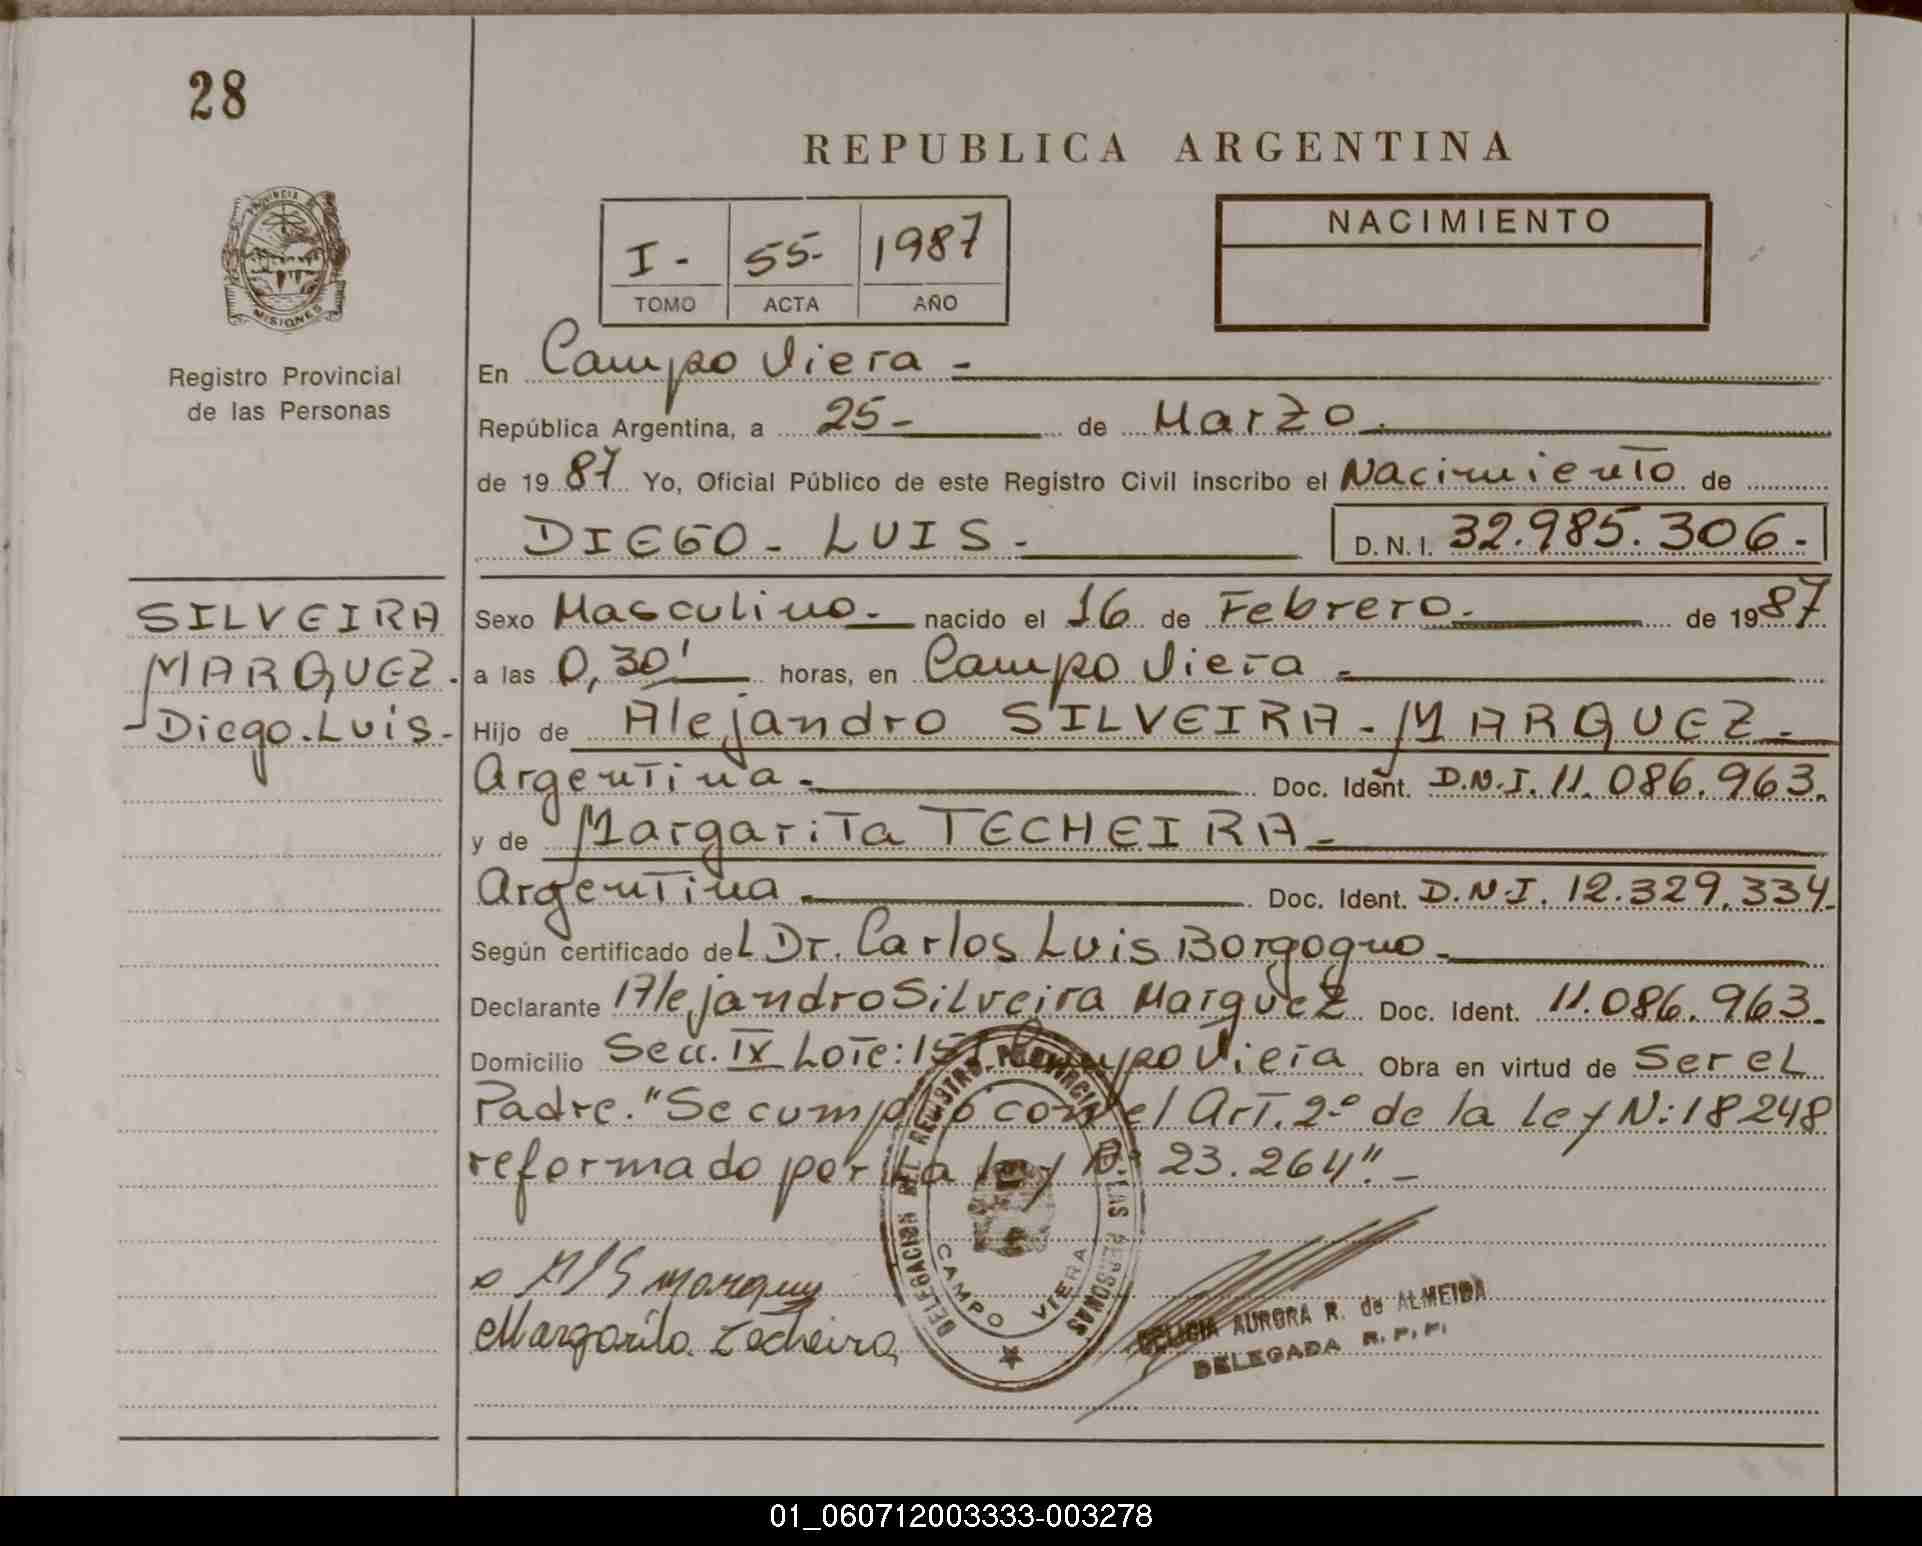 28
REPUBLICA ARGENTINA
PROVINCIA DE
MISIONES
Registro Provincial
de las Personas
I - 55- 1987
TOMO ACTA AÑO
NACIMIENTO
En Campo Viera -
República Argentina, a 25- de Marzo.
de 1987 Yo, Oficial Público de este Registro Civil inscribo el Nacimiento de
DIEGO - LUIS - D.N.I. 32.985.306.-
SILVEIRA
MARQUEZ.
-Diego.Luis.-
Sexo Masculino.- nacido el 16 de Febrero.- de 1987
a las 0,30' horas, en Campo Viera -
Hijo de Alejandro SILVEIRA - MARQUEZ -
Argentina.- Doc. Ident. D.N.I. 11.086.963.
y de Margarita TECHEIRA -
Argentina - Doc. Ident. D.N.I. 12.329.334.
Según certificado del Dr. Carlos Luis Borgogno -
Declarante Alejandro Silveira Marquez Doc. Ident. 11.086.963.
Domicilio Secc. IX Lote: Campo Viera Obra en virtud de Ser el
Padre. "Se cumplió con el Art. 2º de la Ley N: 18248
reformado por la ley Nº 23.264". -
DELEGACION DEL REGISTRO PROVINCIAL DE LAS PERSONAS
CAMPO VIERA
Marquez
Margarita Techeira
DELICIA AURORA R. de ALMEIDA
DELEGADA R. P. P.
01_060712003333-003278